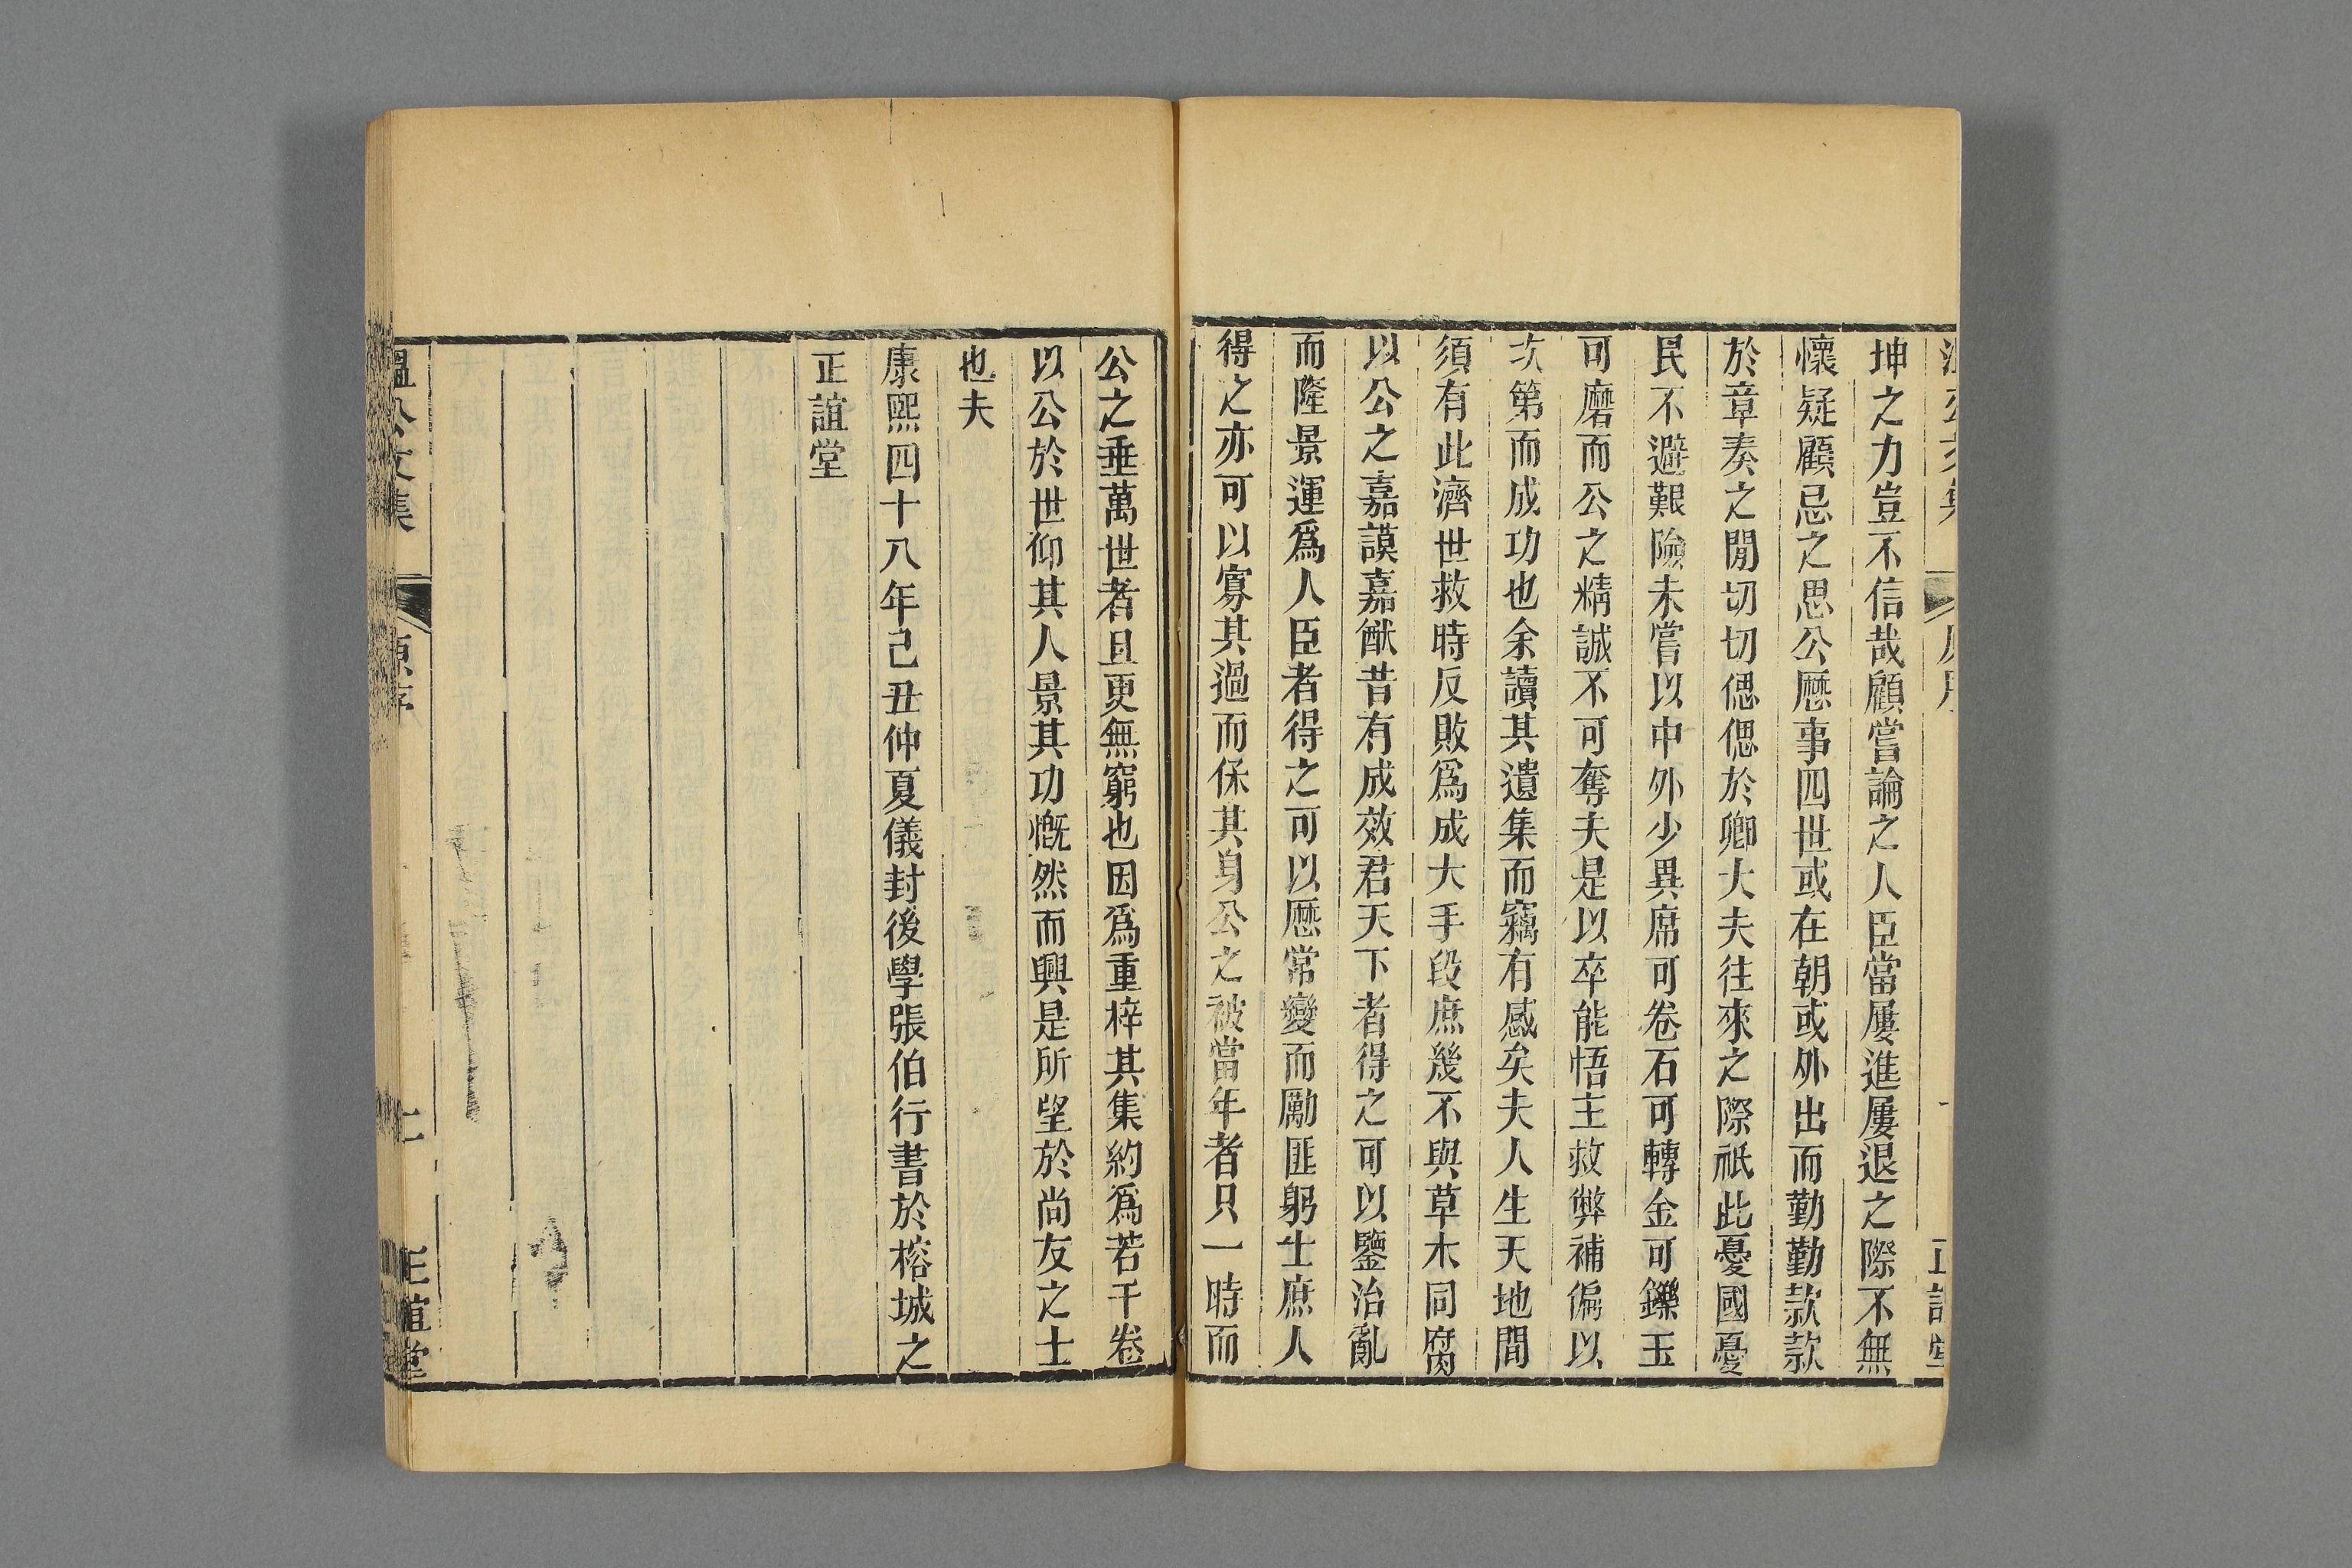 坤之力豈不信哉顧嘗論之人臣當屢進屢退之際不無
懷疑顧忌之思公歷事四世或在朝或外出而勤勤款款
於章奏之閒切切偲偲於卿大夫往來之際祇此憂國憂
民不避艱險未嘗以中外少異席可卷石可轉金可鑠玉
可磨而公之精誠不可奪夫是以卒能悟主救弊補偏以
次第而成功也余讀其遺集而竊有感矣夫人生天地間
須有此濟世救時反敗爲成大手段庶幾不與草木同腐
以公之嘉謨嘉猷昔有成效君天下者得之可以鑒治亂
而隆景運爲人臣者得之可以歷常變而勵匪躬士庶人
得之亦可以寡其過而保其身公之被當年者只一時而
公之垂萬世者且更無窮也因爲重梓其集約爲若干卷
以公於世仰其人景其功慨然而興是所望於尚友之士
也夫
康熙四十八年己丑仲夏儀封後學張伯行書於榕城之
正誼堂
溫公文集 原序 正誼堂